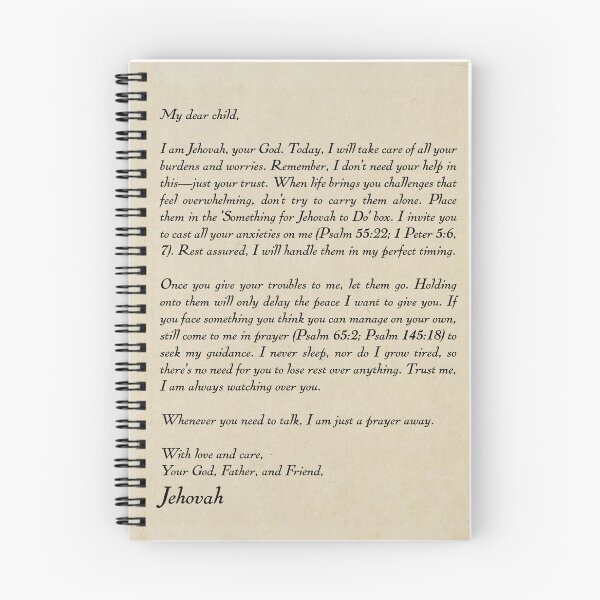 My dear child,
I am Jehovah, your God. Today, I will take care of all your
burdens and worries. Remember, I don't need your help in
this—just your trust. When life brings you challenges that
feel overwhelming, don't try to carry them alone. Place
them in the 'Something for Jehovah to Do' box. I invite you
to cast all your anxieties on me (Psalm 55:22; 1 Peter 5:6,
7). Rest assured, I will handle them in my perfect timing.
Once you give your troubles to me, let them go. Holding
onto them will only delay the peace I want to give you. If
you face something you think you can manage on your own,
still come to me in prayer (Psalm 65:2; Psalm 145:18) to
seek my guidance. I never sleep, nor do I grow tired, so
there's no need for you to lose rest over anything. Trust me,
I am always watching over you.
Whenever you need to talk, I am just a prayer away.
With love and care,
Your God, Father, and Friend,
Jehovah